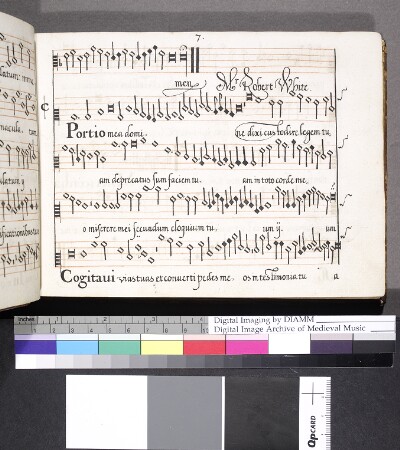 7.
men. Mr Robert White.
Portio mea domi. ne dixi cus todire legem tu.
am deprecatus sum faciem tu. am in toto corde me.
o miserere mei secundum eloquium tu, um ij. um
Cogitaui vias tuas et conuerti pedes me. os in testimonia tu a
inches 1 2 3 4
Digital Imaging by DIAMM
Digital Image Archive of Medieval Music
QPCARD